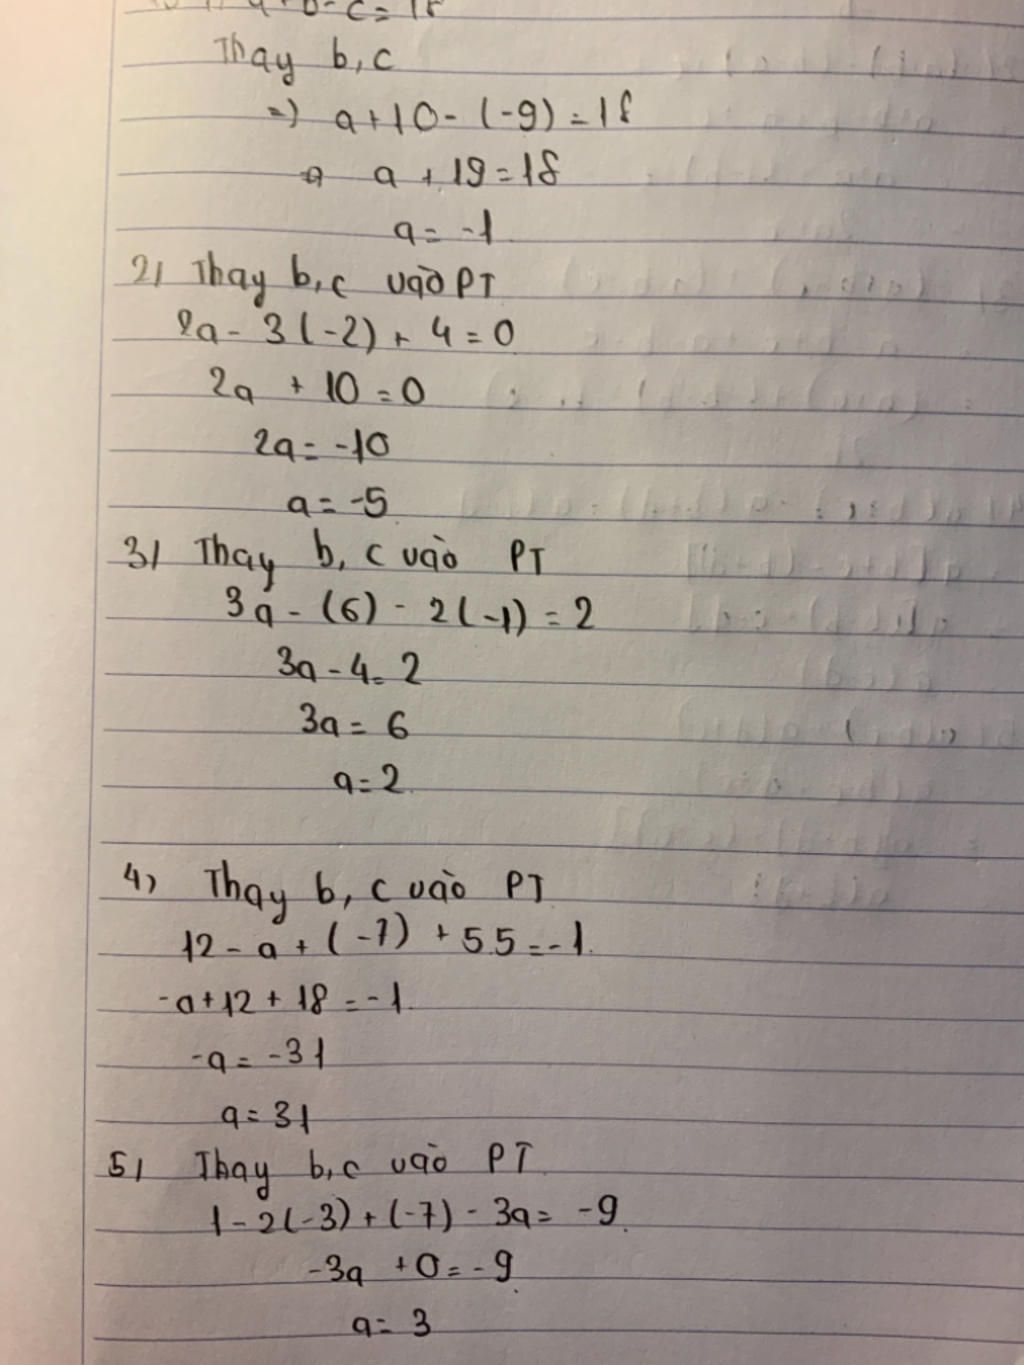 a+b-c=18
Thay b,c
=) a+10-(-9)=18
a+19=18
a=-1
2) Thay b,c vào PT
2a-3(-2)+4=0
2a+10=0
2a=-10
a=-5
3) Thay b,c vào PT
3a-(6)-2(-1)=2
3a-4=2
3a=6
a=2
4) Thay b,c vào PT
12-a+(-7)+5.5=-1
-a+12+18=-1
-a=-31
a=31
5) Thay b,c vào PT
1-2(-3)+(-7)-3a=-9
-3a+0=-9
a=3